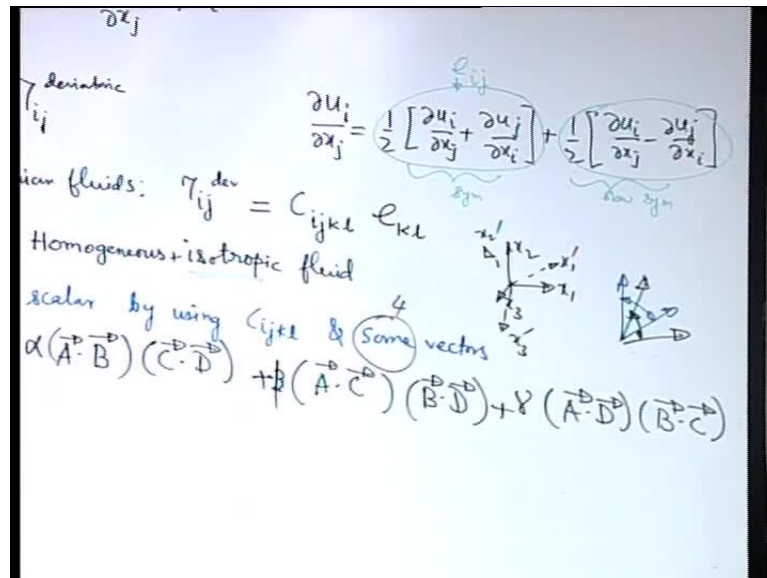 ∂x_j
τ_ij^deviatoric
e_ij
∂u_i/∂x_j = 1/2 [∂u_i/∂x_j + ∂u_j/∂x_i] + 1/2 [∂u_i/∂x_j - ∂u_j/∂x_i]
sym
skew sym
ian fluids: τ_ij^dev = C_ijkl e_kl
Homogeneous + isotropic fluid
x_2' x_2 x_1' x_1 x_3 x_3'
4
scalar by using C_ijkl & some vectors
α(A⃗·B⃗)(C⃗·D⃗) + β(A⃗·C⃗)(B⃗·D⃗) + γ(A⃗·D⃗)(B⃗·C⃗)